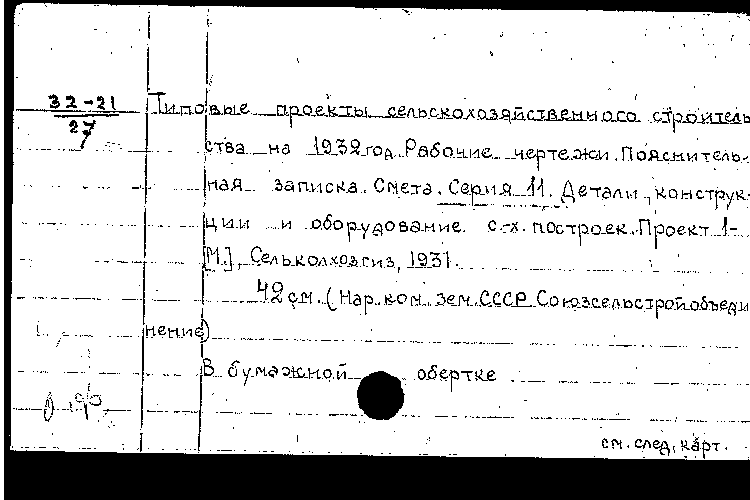 32-21
27
Типовые проекты сельскохозяйственного строитель
ства на 1932 год. Рабочие чертежи. Пояснитель-
ная записка. Смета. Серия 11. Детали, конструк-
ции и оборудование с-х. построек. Проект 1-
[М.], Сельколхозгиз, 1931.
42 см. (Нар. ком. зем. СССР Союзсельстройобъеди
нение)
В бумажной обертке
см. след. карт.